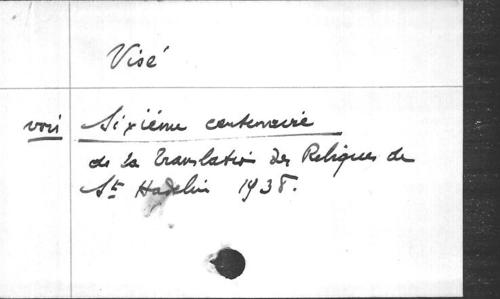 Visé
voir Sixième centenaire
de la Translation des Reliques de
St. Hadelin 1938.